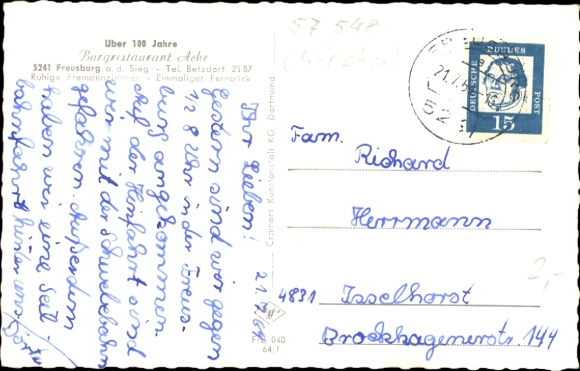 Über 100 Jahre
Burgrestaurant Ache
5241 Freusburg a. d. Sieg - Tel. Betzdorf 25 87
Ruhige Fremdenzimmer - Einmaliger Fernblick
21.7.64
Ihr Lieben!
Gestern sind wir gegen
12 8 Uhr in der Freus-
burg angekommen.
Auf der Hinfahrt sind
wir mit der Schwebebahn
gefahren. Außerdem
haben wir eine Seil-
bahnfahrt hinter uns.
Cramers Kunstanstalt KG Dortmund
Fre 040
64/1
57 548
(Kirchen)
21.7.
DEUTSCHE
BUNDES
POST
15
Fam.
Richard
Herrmann
4831 Isselhorst
Brockhagenerstr. 144
2,-